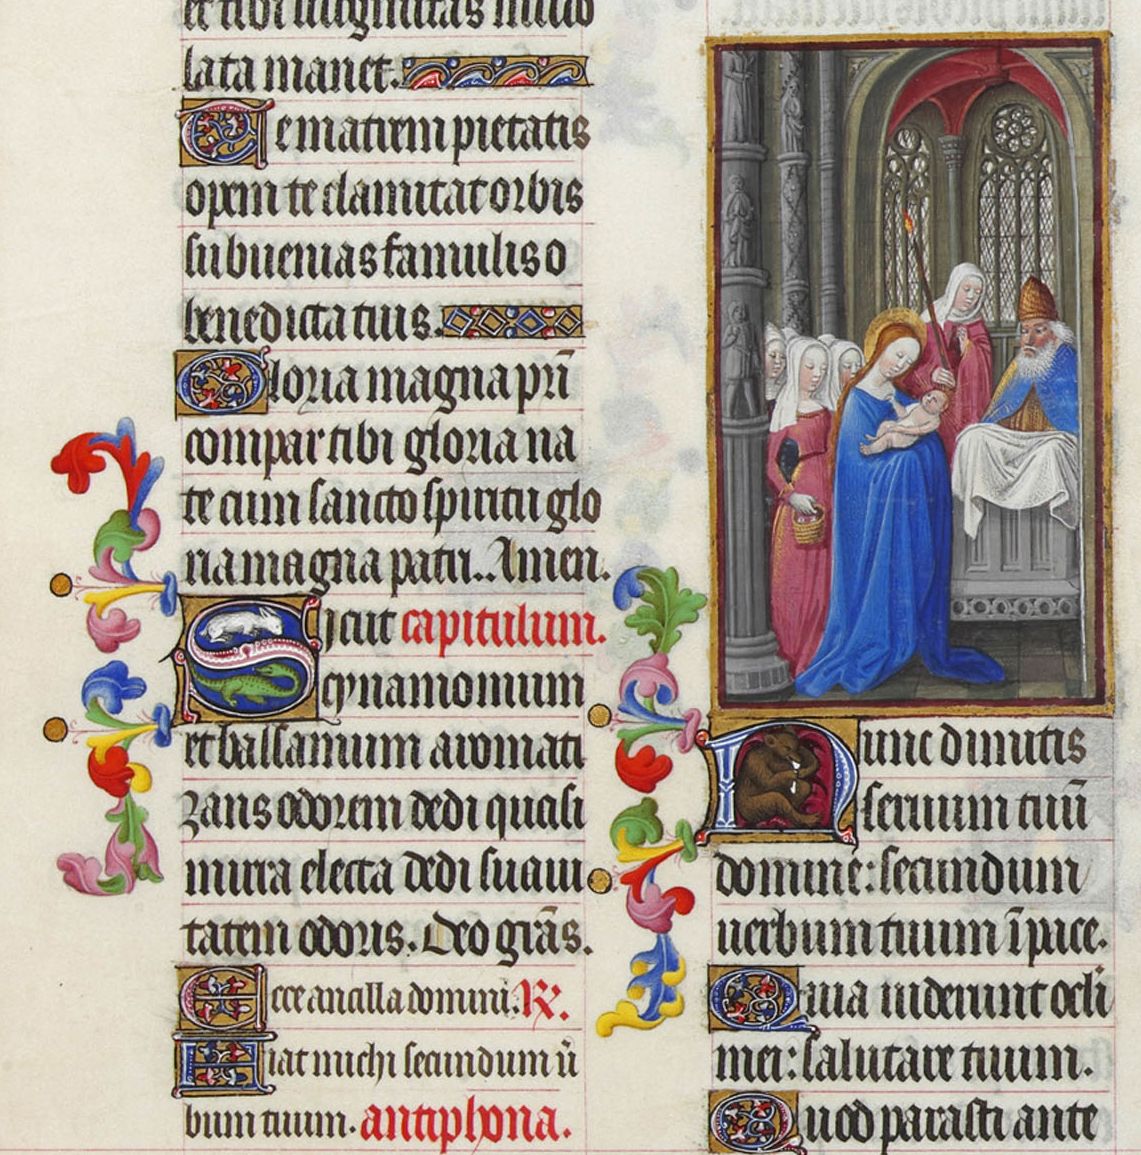 et tibi uirginitas inuio
lata manet.
Te matrem pietatis
opem te clamitat orbis
subuenias famulis o
benedicta tuis.
Gloria magna pr̄i
compar tibi gloria na
te cum sancto spiritu glo
ria magna patri.. Amen.
Sicut capitulum.
cynamomum
et balsamum aromati
zans odorem dedi quasi
mirra electa dedi suaui
tatem odoris. Deo gr̄as.
Ecce ancilla domini. ℟.
Fiat michi secundum ũ
bum tuum. antiphona.
Nunc dimitis
seruum tuū
domine: secundum
uerbum tuum ī pace.
Quia uiderunt ocl̄i
mei: salutare tuum.
Quod parasti ante